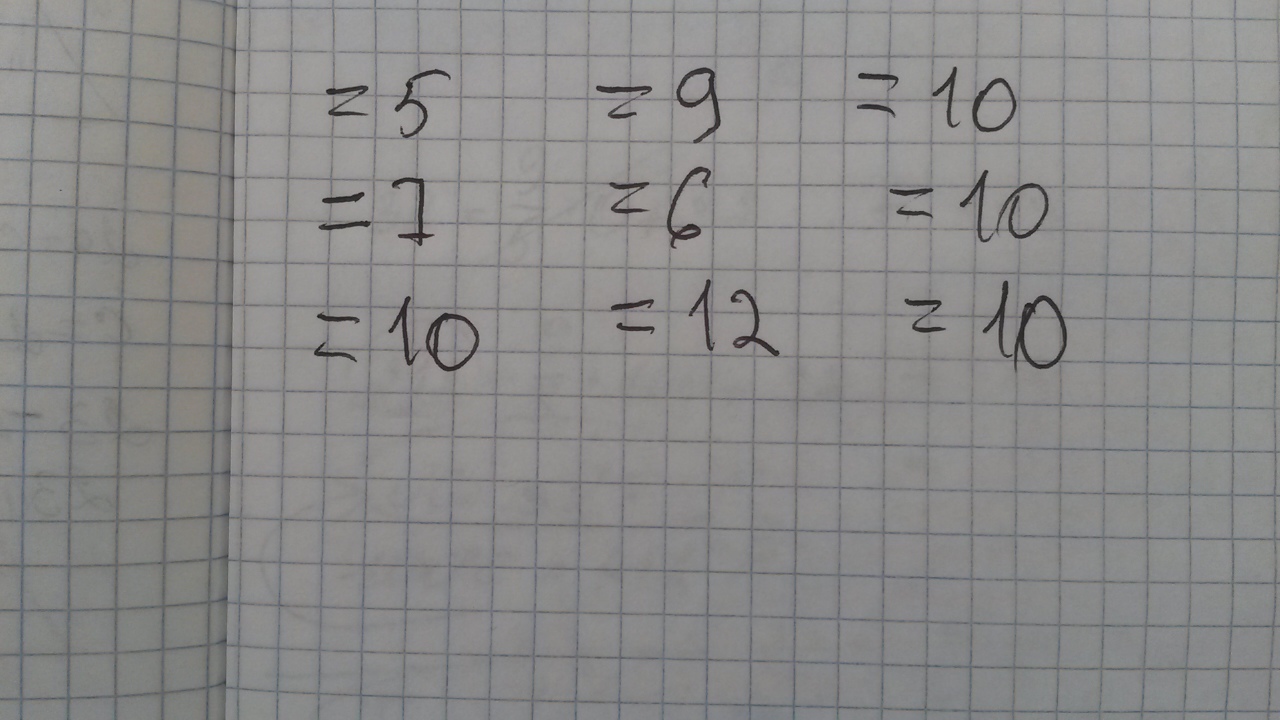 = 5 = 9 = 10
= 7 = 6 = 10
= 10 = 12 = 10